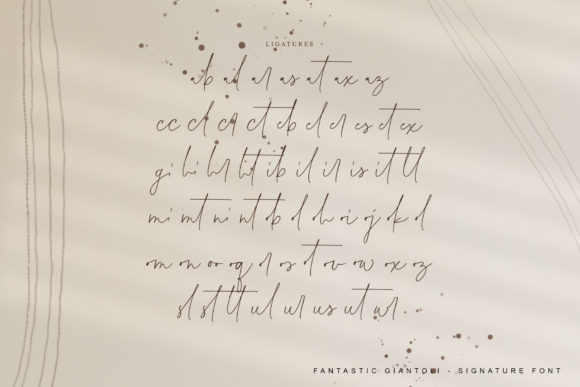 LIGATURES
ab al ar as at ax az
cc cl cr ct eb el er es et ex
gi hi hr ht ib il ir is it ll
mi mt ni nt ob oh oi oj ok ol
om on oo oq os ot ov ow ox oz
sl st tt ul ur us ut wr
FANTASTIC GIANTOLI - SIGNATURE FONT